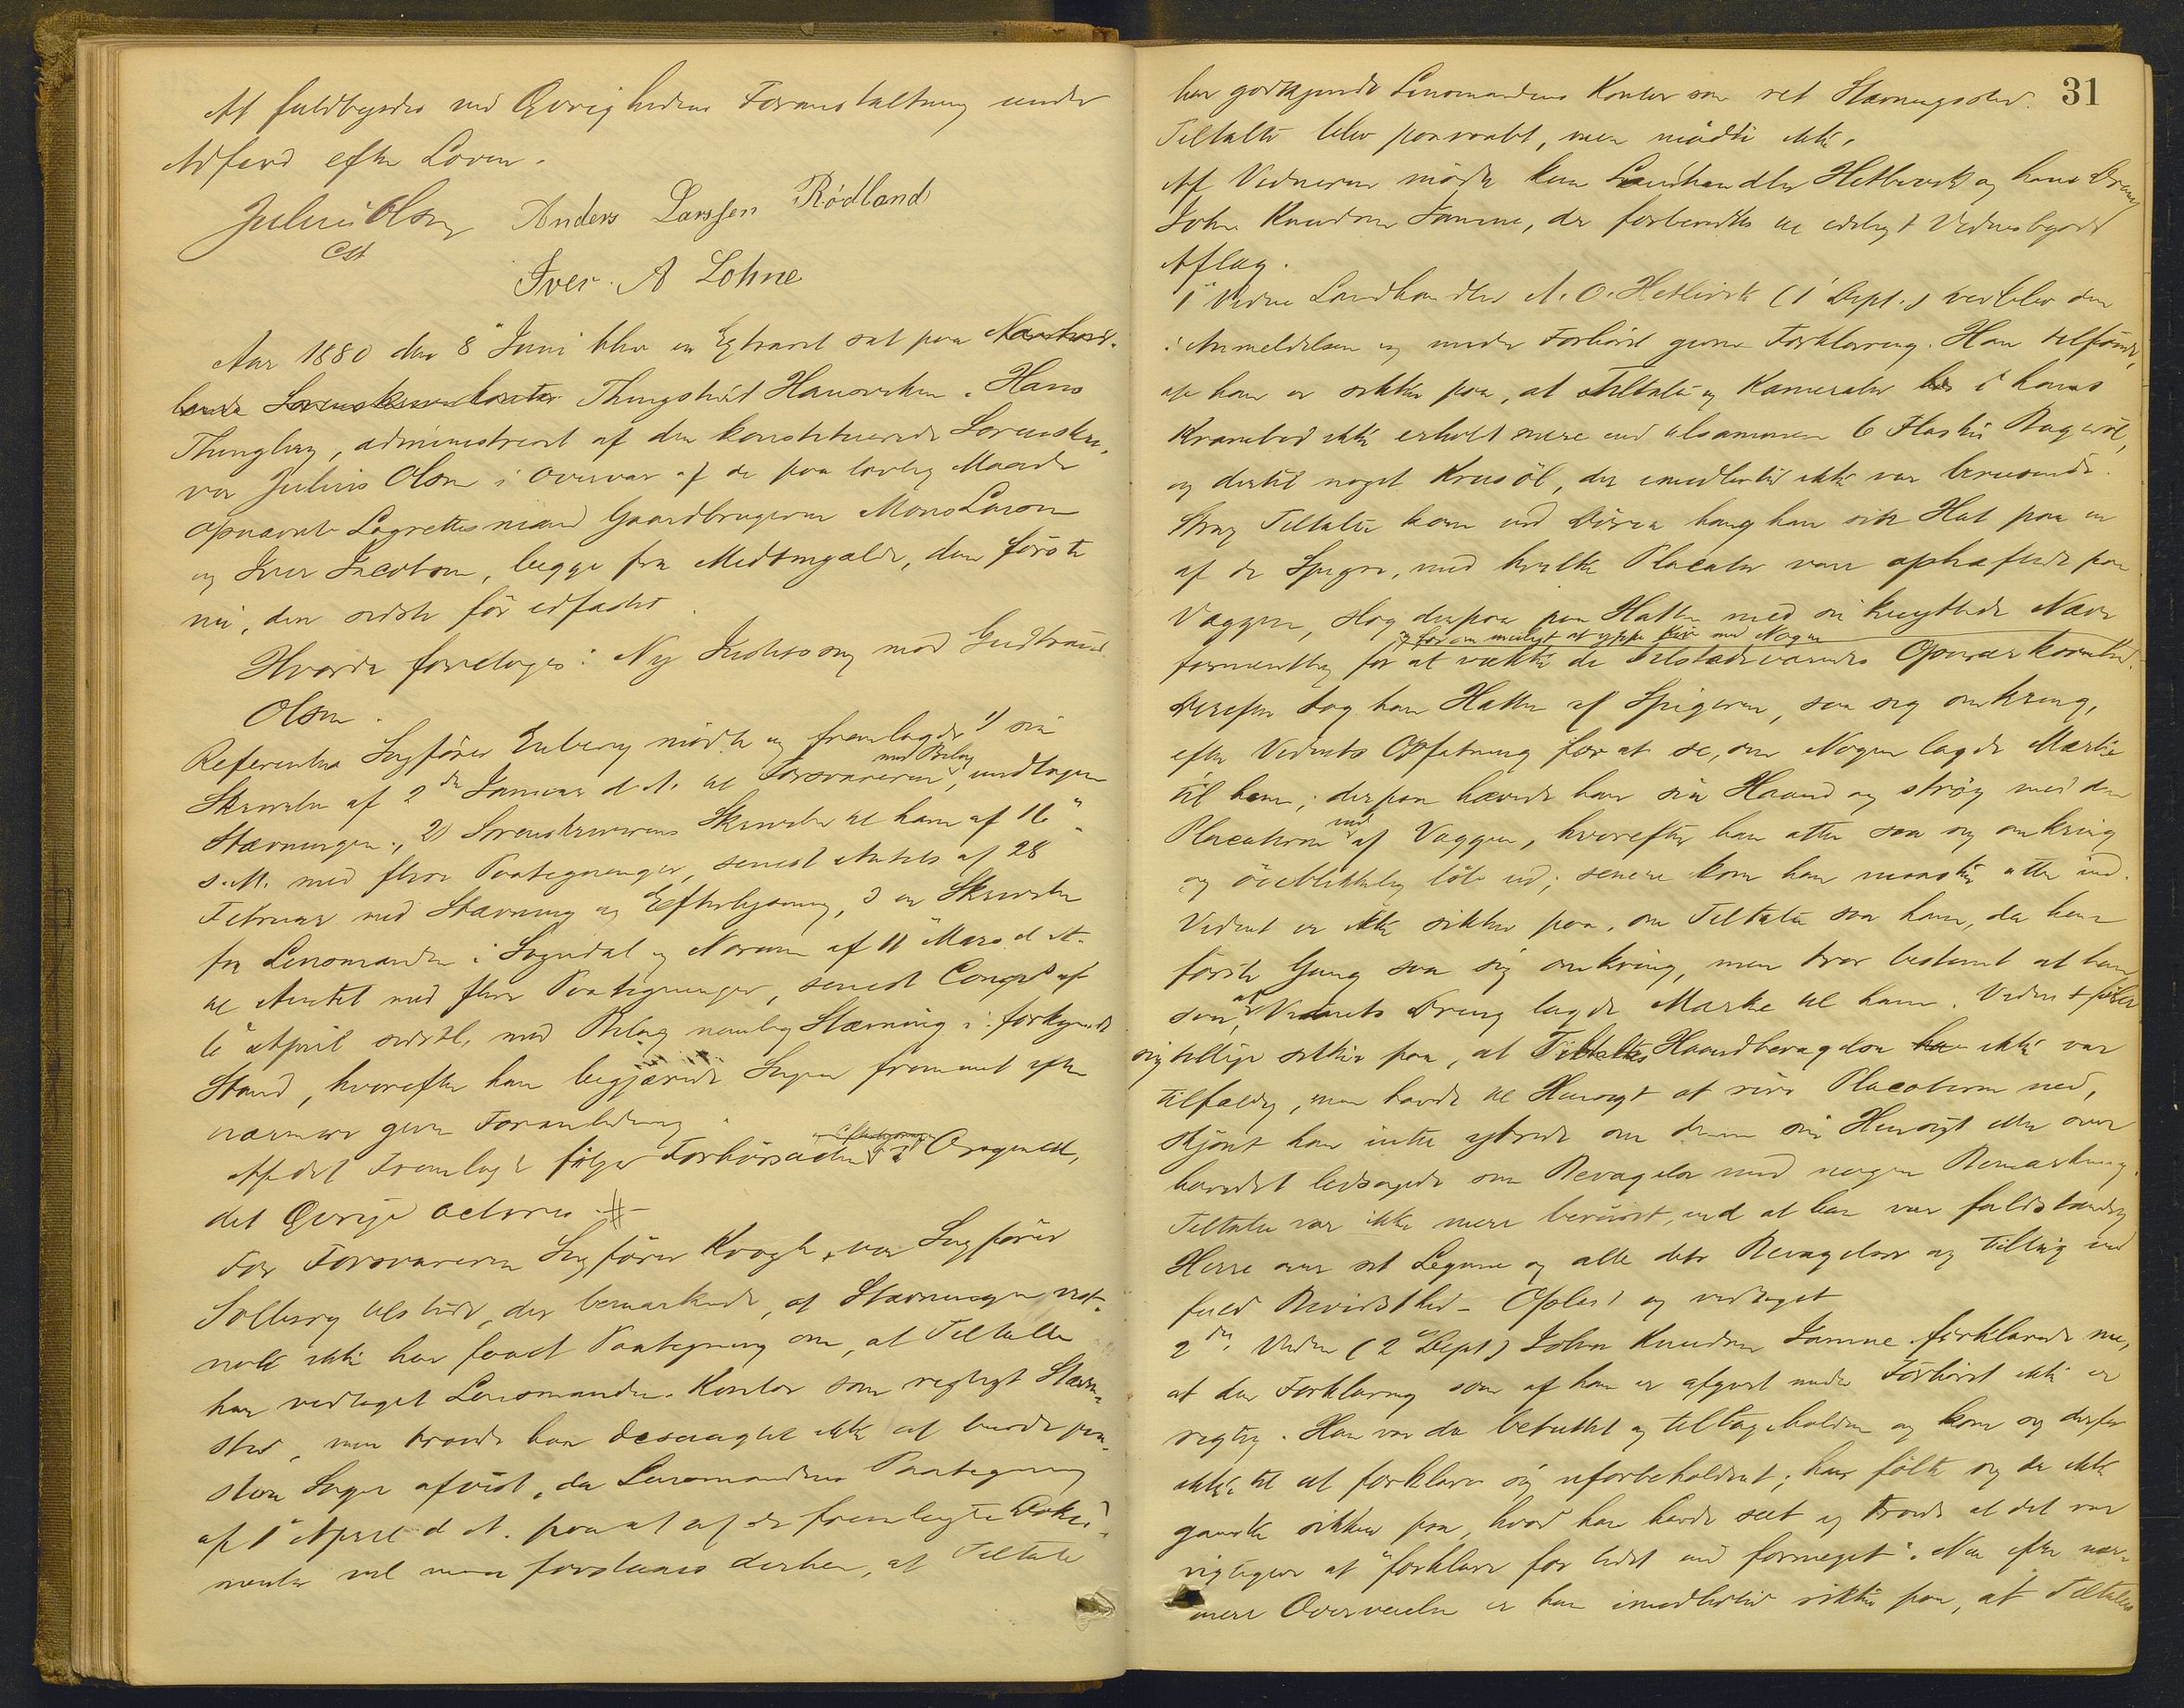 At fuldbyrdes ved Øvrighedens Foranstaltning under
Adfærd efter Loven.
Julius Olsen Anders Larssen Rødland
cst
Iver A Lohne
Aar 1880 den 8 Juni blev en Extraret sat paa Nordhord-
lands Sorenskriverkontor Thingstedet Hausviken i Haus
Thinglag, administreret af den konstituerede Sorenskri-
ver Julius Olsen i Overvær af de paa lovlig Maade
opnævnte Lagrettesmænd Gaardbrugerne Mons Larsen
og Iver Jacobsen, begge fra Midtmgælde, den første
nu, den sidste før edfæstet.
Hvorda foretoges: Ny Justitssag mod Gudbrand
Olsen.
Referenten Sagfører Enberg mødte og fremlagde 1) sin
med Bilag
Skrivelse af 2den Januar d. A. til Forsvareren, undtagen
Stævningen, 2) Sorenskriverens Skrivelse til ham af 16
s. M. med flere Paategninger, senest Amtets af 28
Februar med Stævning og Efterlysning, 3 en Skrivelse
fra Lensmanden i Sogndal og Norum af 11 Mars d. A.
til Amtet med flere Paategninger, senest af
6 April sidstl, med Bilag nemlig Stævning i forkyndt
Stand, hvorefter han begjærede Sagen fremmet efter
nærmere given Foranledning.
og Efterlysningen
Af det Fremlagte følger Forhørsacten i Original,
det Øvrige acteres
For Forsvareren Sagfører Krogh, var Sagfører
Solberg tilstede, der bemærkede, at Stævningen ret-
nok ikke har faaet Paategning om, at Tiltalte
har vedtaget Lensmandens Kontor som rigtigt Stævne-
sted, men troede han desuagtet ikke at burde paa-
staa Sagen afvist, da Lensmandens Paategning
af 1 April d. A. paa et af de fremlagte Doku-
menter vel maa forstaaes derhen, at Tiltalte
31
har godkjendt Lensmandens Kontor som ret Stævningssted.
Tiltalte blev paaraabt, men mødte ikke.
Af Vidnerne mødte kun Landhandler Hetlevik og hans Dreng
John Knudsen Tamme, der forberedtes til edeligt Vidnesbyrds
Aflæg.
1 Vidne Landhandler A. O. Hetlevik (1 Dept.) vedblev den
i Anmeldelsen og under Forhøret givne Forklaring. Han tilføiede,
at han er sikker paa, at Tiltalte og Kamerater i hans
Krambod ikke erholdt mere end tilsammen 6 Flasker Bayerøl,
og dertil noget Krusøl, der imidlertid ikke var berusende.
Strax Tiltalte kom ind Døren hang han sin Hat paa en
af de Spiger, med hvilke Placater vare ophæftede paa
Væggen, slog derpaa paa Hatten med sin knyttede Næve
og for om muligt at yppe Kiv med Nogen
formentlig for at vække de Tilstedeværendes Opmærksomhed.
Derefter tog han Hatten af Spigeren, saa sig omkring,
efter Vidnets Opfatning for at se, om Nogen lagde Mærke
til ham; derpaa hævede han sin Haand og strøg med den
ned
Placaterne af Væggen, hvorefter han atter saa sig omkring
og øieblikkelig løb ud; senere kom han maaske atter ind.
Vidnet er ikke sikker paa, om Tiltalte saa ham, da han
første Gang saa sig omkring, men tror bestemt at han
saa, at Vidnets Dreng lagde Mærke til ham. Vidnet føler
sig tillige sikker paa, at Tiltaltes Haandbevægelse ikke var
tilfældig, men havde til Hensigt at rive Placaterne ned,
skjønt han intet ytrede om denne sin Hensigt eller over-
hovedet ledsagede sin Bevægelse med nogen Bemærkning.
Tiltalte var ikke mere beruset, end at han var fuldstændig
Herre over sit Legeme og alle dets Bevægelser og tillige ved
fuld Bevidsthed – Oplæst og vedtaget
2det Vidne (2 Dept) John Knudsen Tamme forklarede nu,
at den Forklaring som af ham er afgivet under Forhøret ikke er
rigtig. Han var da betuttet og tilbageholden og kom sig derfor
ikke til at forklare sig uforbeholdent; han følte sig da ikke
ganske sikker paa, hvad han havde seet og troede at det var
rigtigere at "forklare for lidet end formeget". Nu efter nær-
mere Overveielse er han imidlertid sikker paa, at Tiltaltes